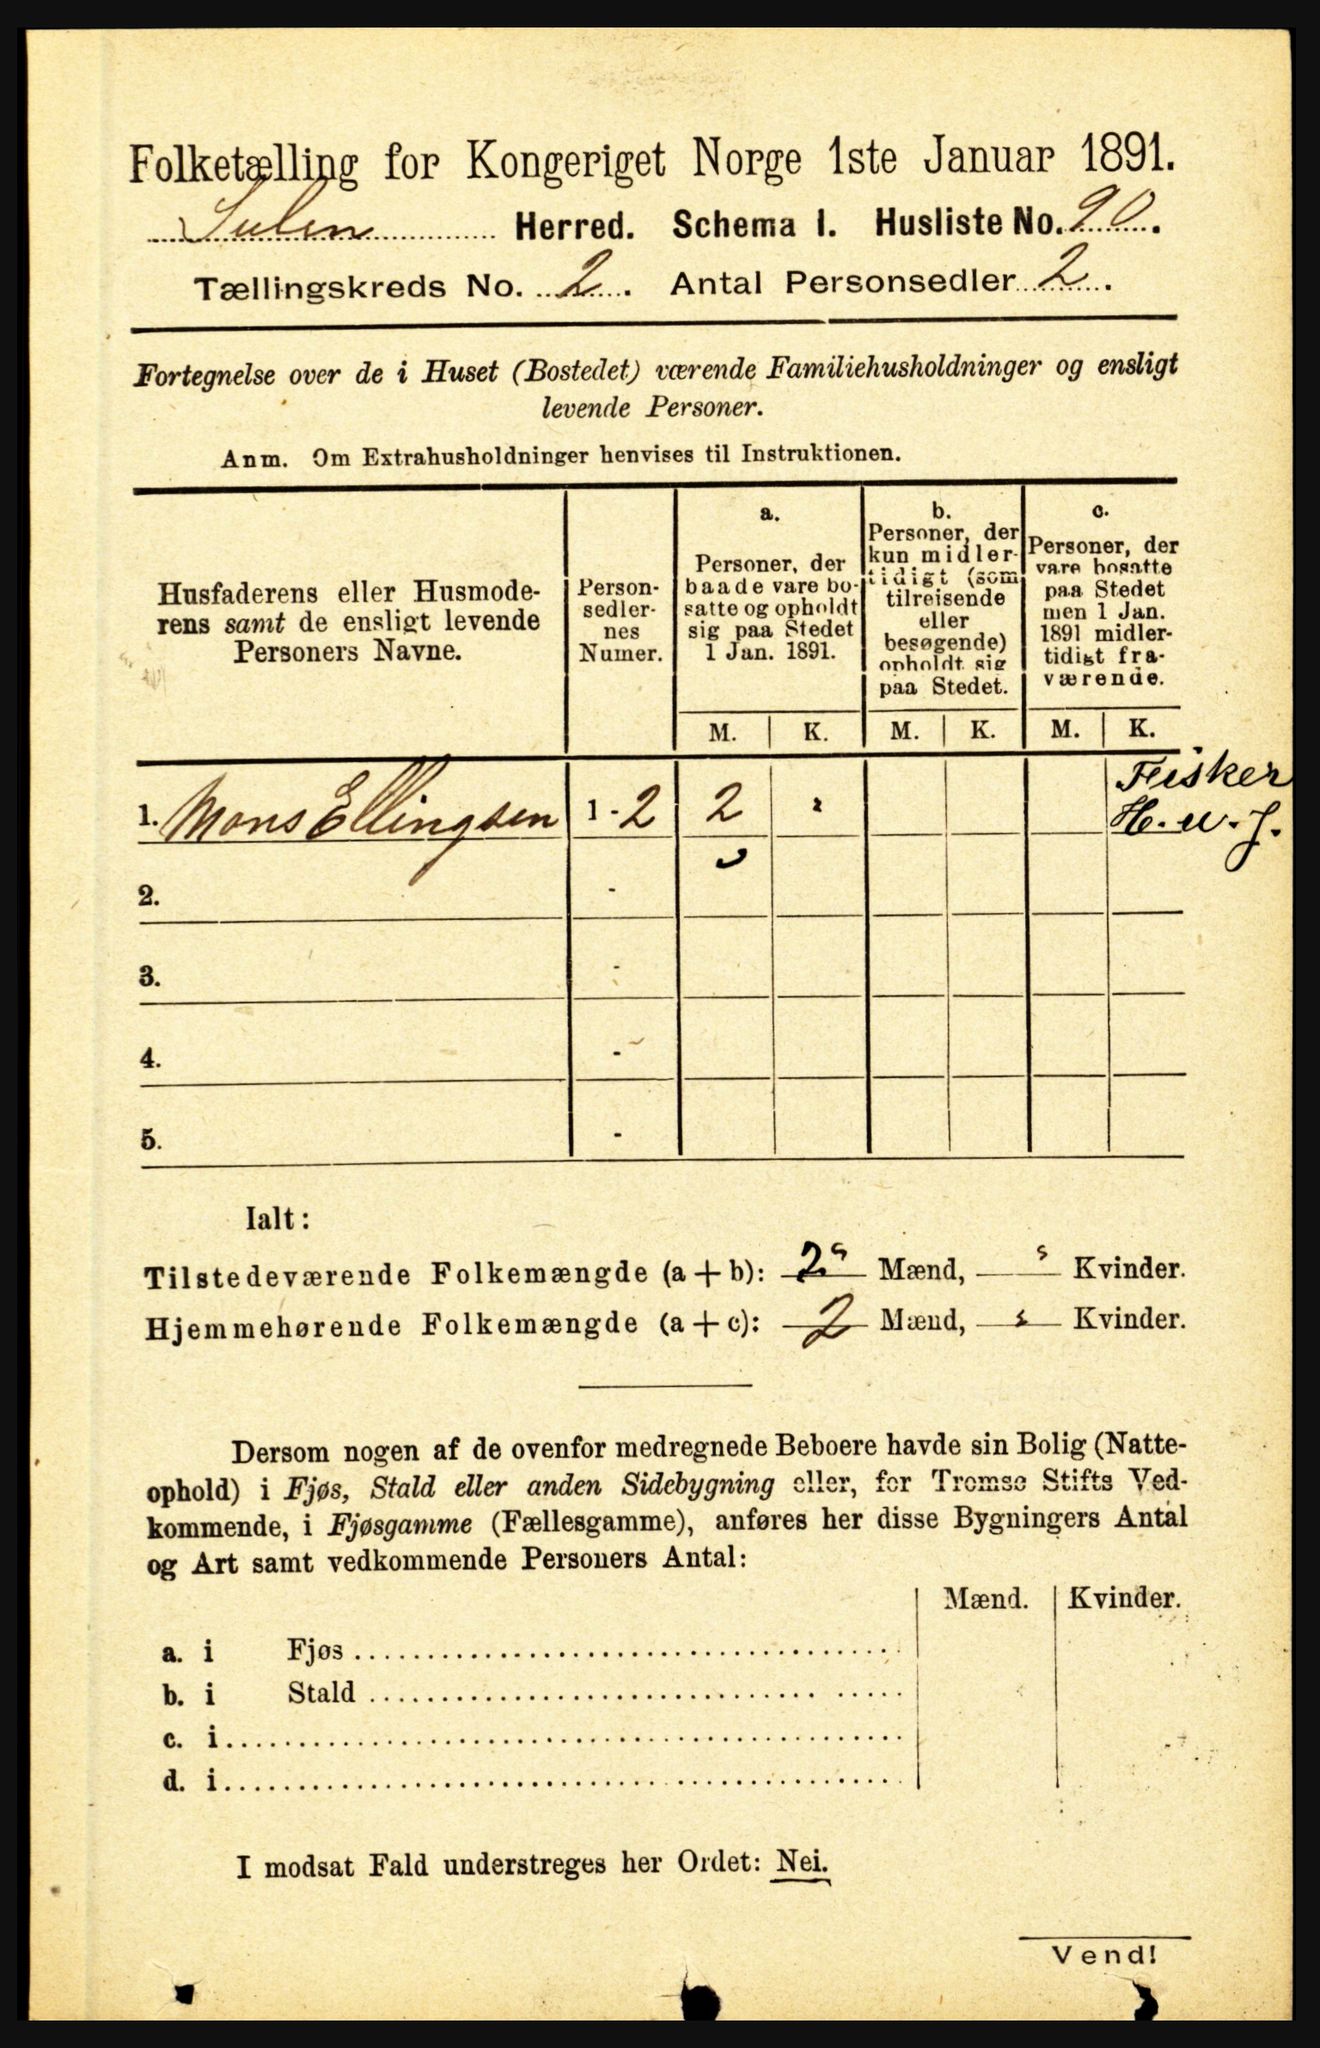 Folketælling for Kongeriget Norge 1ste Januar 1891.
Sulen Herred. Schema I. Husliste No. 90.
Tællingskreds No. 2. Antal Personsedler 2.
Fortegnelse over de i Huset (Bostedet) værende Familiehusholdninger og ensligt
levende Personer.
Anm. Om Extrahusholdninger henvises til Instruktionen.
Husfaderens eller Husmode-
rens samt de ensligt levende
Personers Navne.
Person-
sedler-
nes
Numer.
a.
Personer, der
baade vare bo-
satte og opholdt
sig paa Stedet
1 Jan. 1891.
b.
Personer, der
kun midler-
tidigt (som
tilreisende
eller
besøgende)
opholdt sig
paa Stedet.
c.
Personer, der
vare bosatte
paa Stedet
men 1 Jan.
1891 midler-
tidigt fra-
værende.
M. K. M. K. M. K.
Fisker
1. Mons Ellingsen 1 - 2 2 H. u. J.
2. -
3. -
4. -
5. -
Ialt:
Tilstedeværende Folkemængde (a + b): 2 Mænd, Kvinder.
Hjemmehørende Folkemængde (a + c): 2 Mænd, Kvinder.
Dersom nogen af de ovenfor medregnede Beboere havde sin Bolig (Natte-
ophold) i Fjøs, Stald eller anden Sidebygning eller, for Tromsø Stifts Ved-
kommende, i Fjøsgamme (Fællesgamme), anføres her disse Bygningers Antal
og Art samt vedkommende Personers Antal:
Mænd. Kvinder.
a. i Fjøs
b. i Stald
c. i
d. i
I modsat Fald understreges her Ordet: Nei.
Vend!